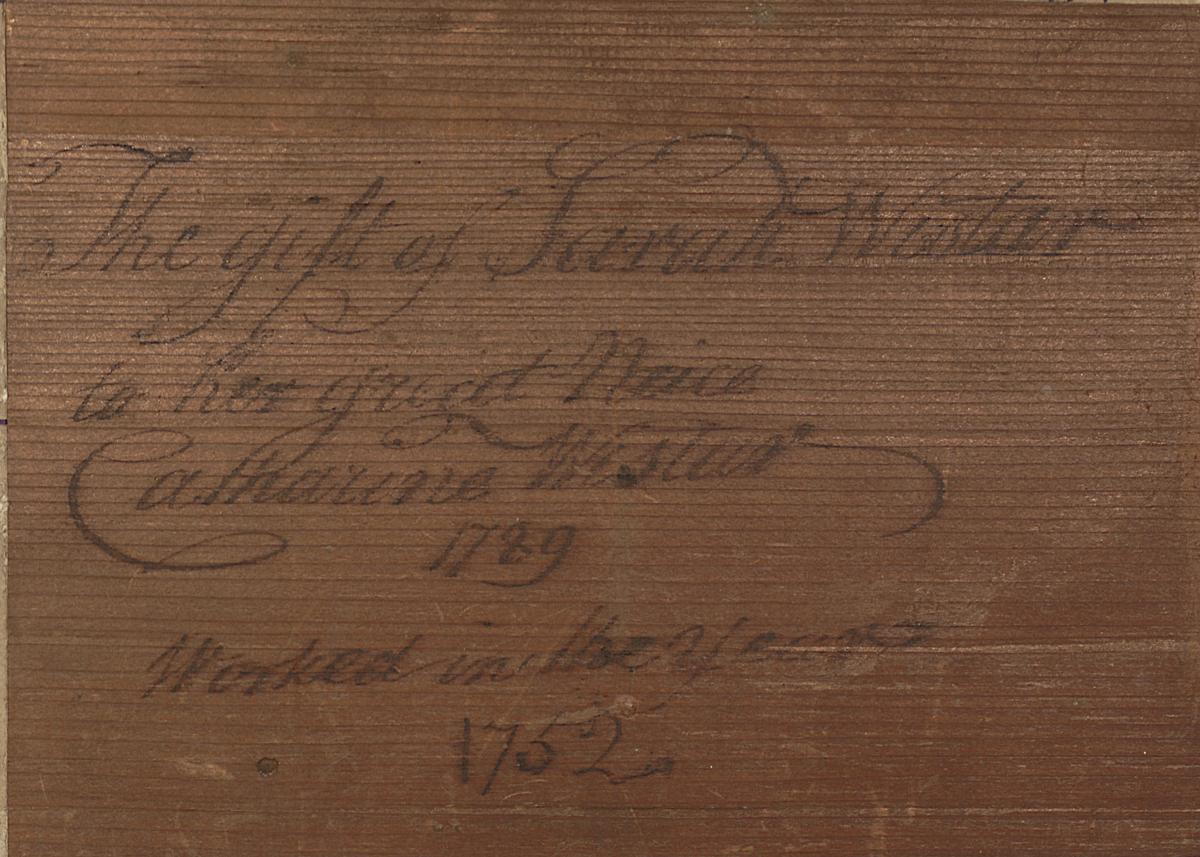 The gift of Sarah Wistar
to her great Neice
Catharine Wistar
1789
Worked in the Year
1752